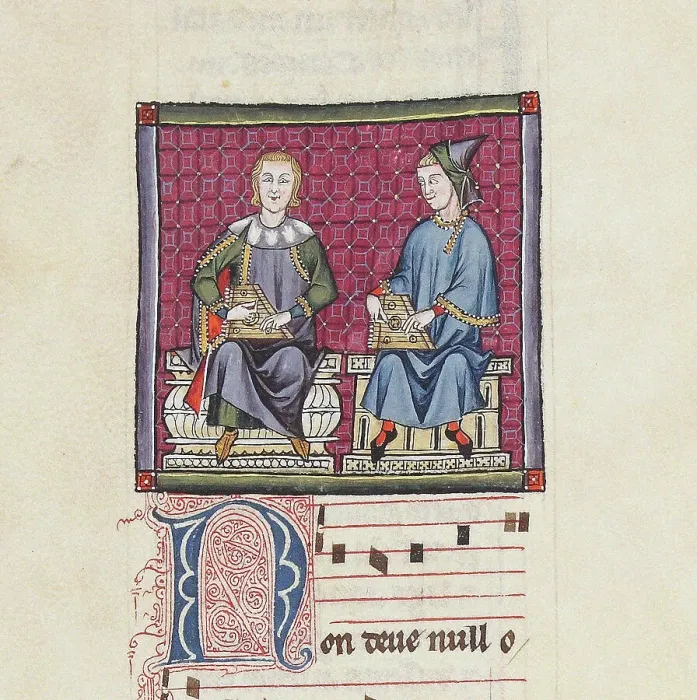 Non deue null o